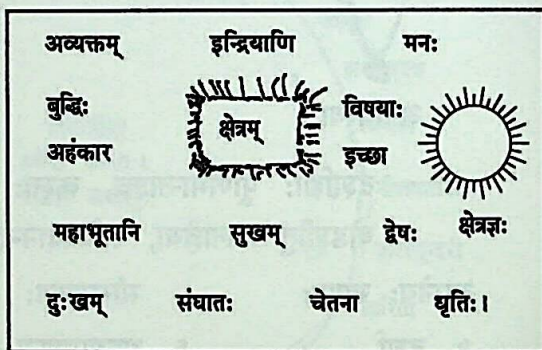 अव्यक्तम् इन्द्रियाणि मनः
बुद्धिः क्षेत्रम् विषयाः
अहंकार इच्छा
महाभूतानि सुखम् द्वेषः क्षेत्रज्ञः
दुःखम् संघातः चेतना धृतिः।